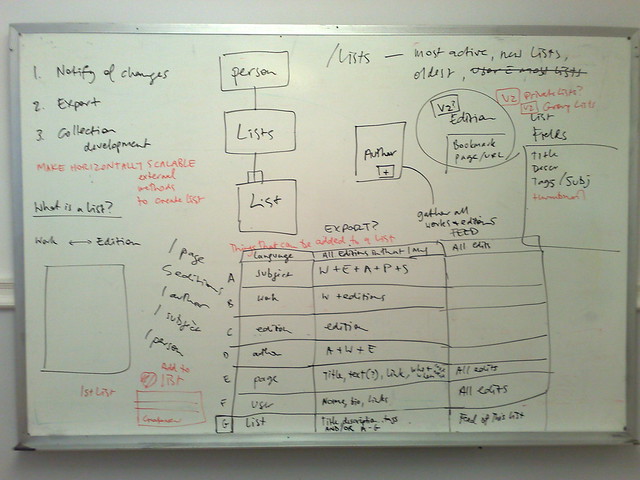 1. Notify of changes
2. Export
3. Collection development
MAKE HORIZONTALLY SCALABLE
external
methods
to create list
What is a list?
Work ↔ Edition
1 page
5 editions
1 author
1 subject
1 person
1st List
Add to
list
person
Lists
List
/Lists — most active, new lists,
oldest, User E most lists
V2?
Edition
Bookmark
page/URL
Author
+
gather all
works + editions
FEED
V2 Private lists?
V2 Group Lists
List
Fields
Title
Descr
Tags/Subj
thumbnail?
EXPORT?
Things that can be added to a list
language All Editions in that lang All edits
A subject W + E + A + P + S
B work W + editions
C edition edition
D author A + W + E
E page Title, text(?), link, All edits
F user Name, bio, links All edits
G List Title, description, tags Feed of this list
AND/OR A-G